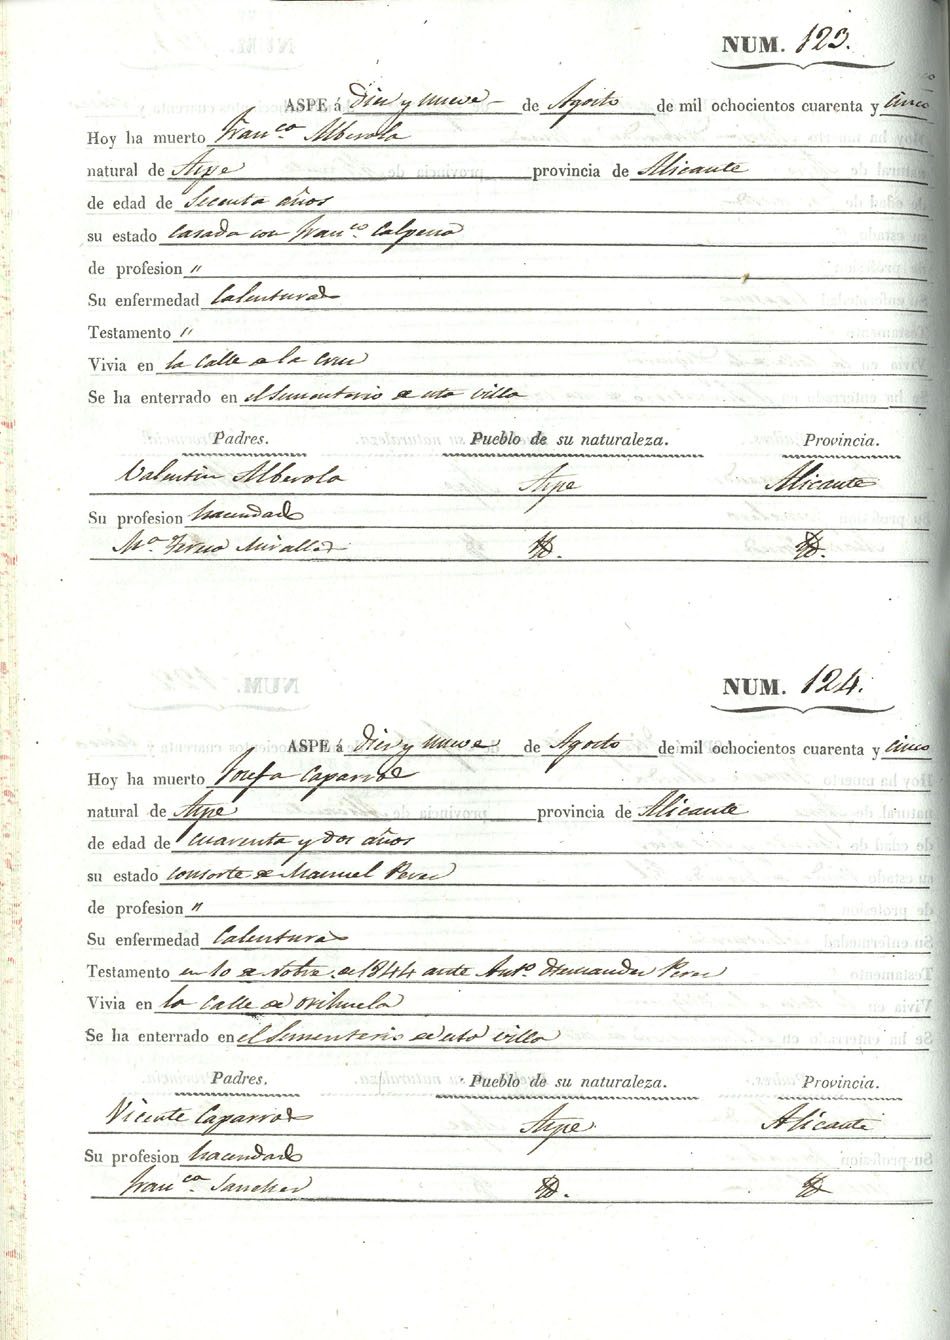 NUM. 123.
ASPE á Diez y nueve de Agosto de mil ochocientos cuarenta y cinco
Hoy ha muerto Franca Alberola
natural de Aspe provincia de Alicante
de edad de Secenta años
su estado casada con Franco Calpena
de profesion "
Su enfermedad Calenturas
Testamento "
Vivia en la Calle de la Cruz
Se ha enterrado en el Sementerio de esta villa
Padres. Pueblo de su naturaleza. Provincia.
Valentin Alberola Aspe Alicante
Su profesion hacendado
Ma Miralles
NUM. 124.
ASPE á Diez y nueve de Agosto de mil ochocientos cuarenta y cinco
Hoy ha muerto Josefa Caparros
natural de Aspe provincia de Alicante
de edad de cuarenta y dos años
su estado consorte de Manuel Perez
de profesion "
Su enfermedad Calenturas
Testamento en 10 de de 1844 ante Anto Hernandez Perez
Vivia en la calle de orihuela
Se ha enterrado en el Sementerio de esta villa
Padres. Pueblo de su naturaleza. Provincia.
Vicente Caparros Aspe Alicante
Su profesion hacendado
Franca Sanchez